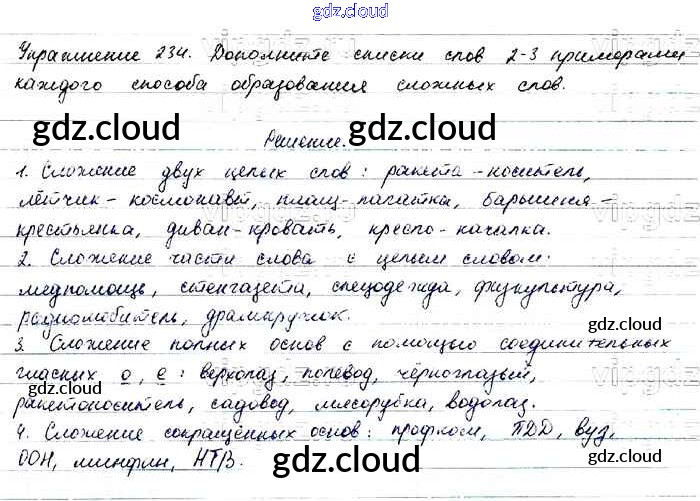 gdz.cloud
Упражнение 234. Дополните списки слов 2-3 примерами
каждого способа образования сложных слов.
gdz.cloud gdz.cloud
Решение.
1. Сложение двух целых слов: ракета-носитель,
лётчик-космонавт, плащ-палатка, барышня-
крестьянка, диван-кровать, кресло-качалка.
2. Сложение части слова с целым словом:
медпомощь, стенгазета, спецодежда, физкультура,
радиолюбитель, драмкружок.
gdz.cloud
3. Сложение полных основ с помощью соединительных
гласных о, е: верхолаз, полевод, черноглазый,
gdz.cloud
ракетоноситель, садовод, мясорубка, водолаз.
gdz.cloud
4. Сложение сокращённых основ: профком, ПДД, вуз,
ООН, минфин, НТВ.
gdz.cloud
gdz.cloud